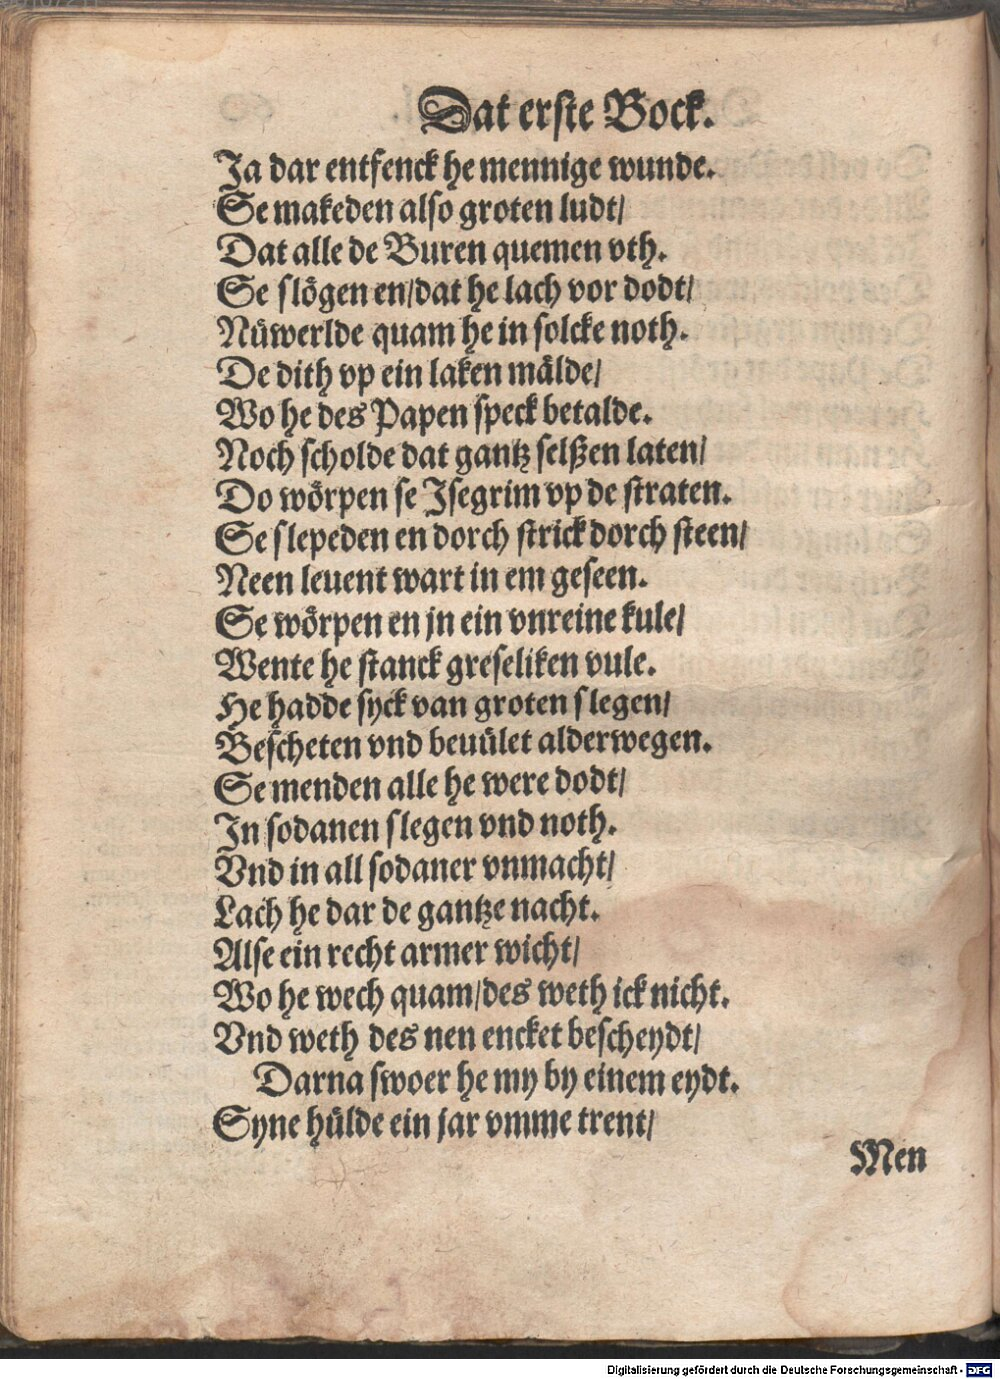 Dat erste Bock.
Ja dar entfenck he mennige wunde.
Se makeden also groten ludt/
Dat alle de Buren quemen vth.
Se slögen en/dat he lach vor dodt/
Nüwerlde quam he in solcke noth.
De dith vp ein laken mälde/
Wo he des Papen speck betalde.
Noch scholde dat gantz selßen laten/
Do wörpen se Isegrim vp de straten.
Se slepeden en dorch strick dorch steen/
Neen leuent wart in em geseen.
Se wörpen en jn ein vnreine kule/
Wente he stanck greseliken vule.
He hadde syck van groten slegen/
Bescheten vnd beuület alderwegen.
Se menden alle he were dodt/
In sodanen slegen vnd noth.
Vnd in all sodaner vnmacht/
Lach he dar de gantze nacht.
Alse ein recht armer wicht/
Wo he wech quam/des weth ick nicht.
Vnd weth des nen encket bescheydt/
Darna swoer he my by einem eydt.
Syne hülde ein jar vmme trent/
Men
Digitalisierung gefördert durch die Deutsche Forschungsgemeinschaft - DFG